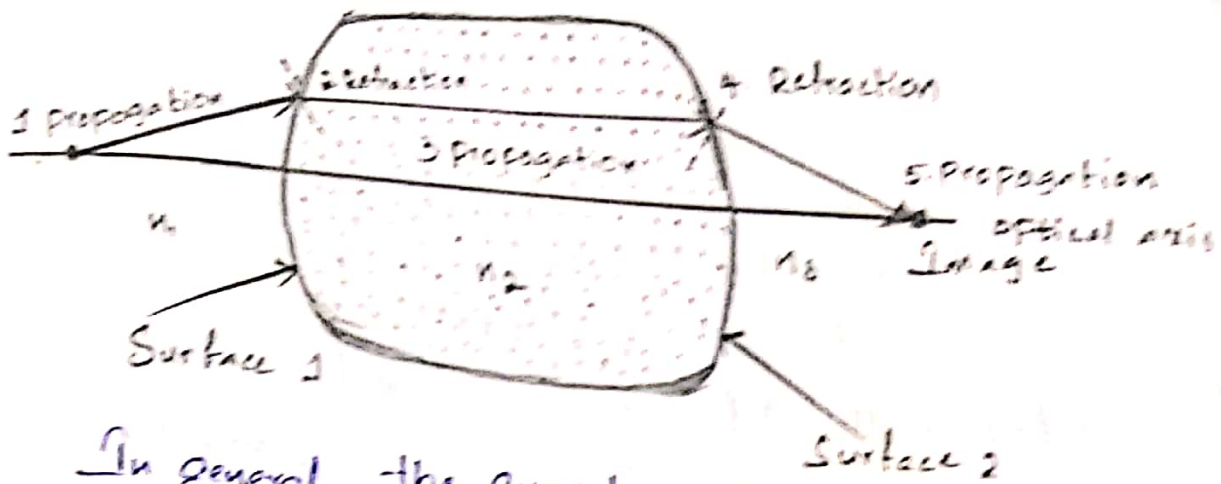 1 propagation
2 Refraction
4 Refraction
3 Propagation
5. Propagation
optical axis
Image
n₁
n₂
n₃
Surface 1
Surface 2
In general the